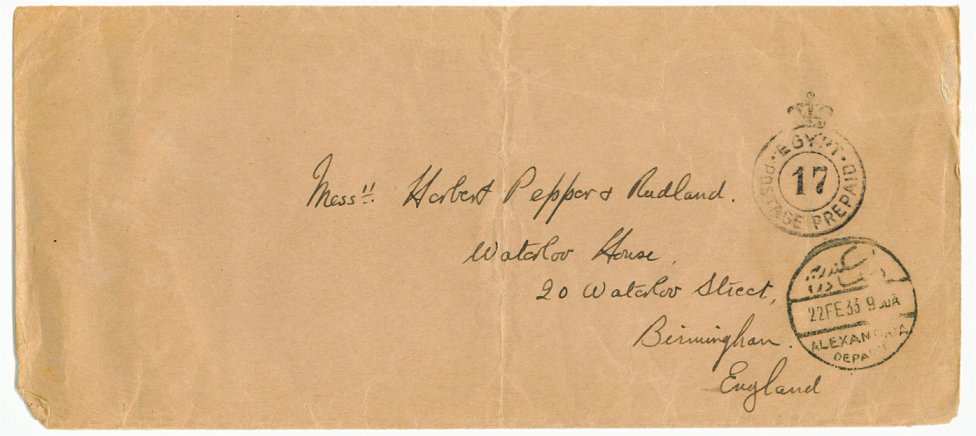 EGYPT
17
POSTAGE PREPAID
Messrs. Herbert Pepper & Rudland.
Waterloo House,
20 Waterloo Street,
Birmingham.
England
22FE 33 9
ALEXANDRIA